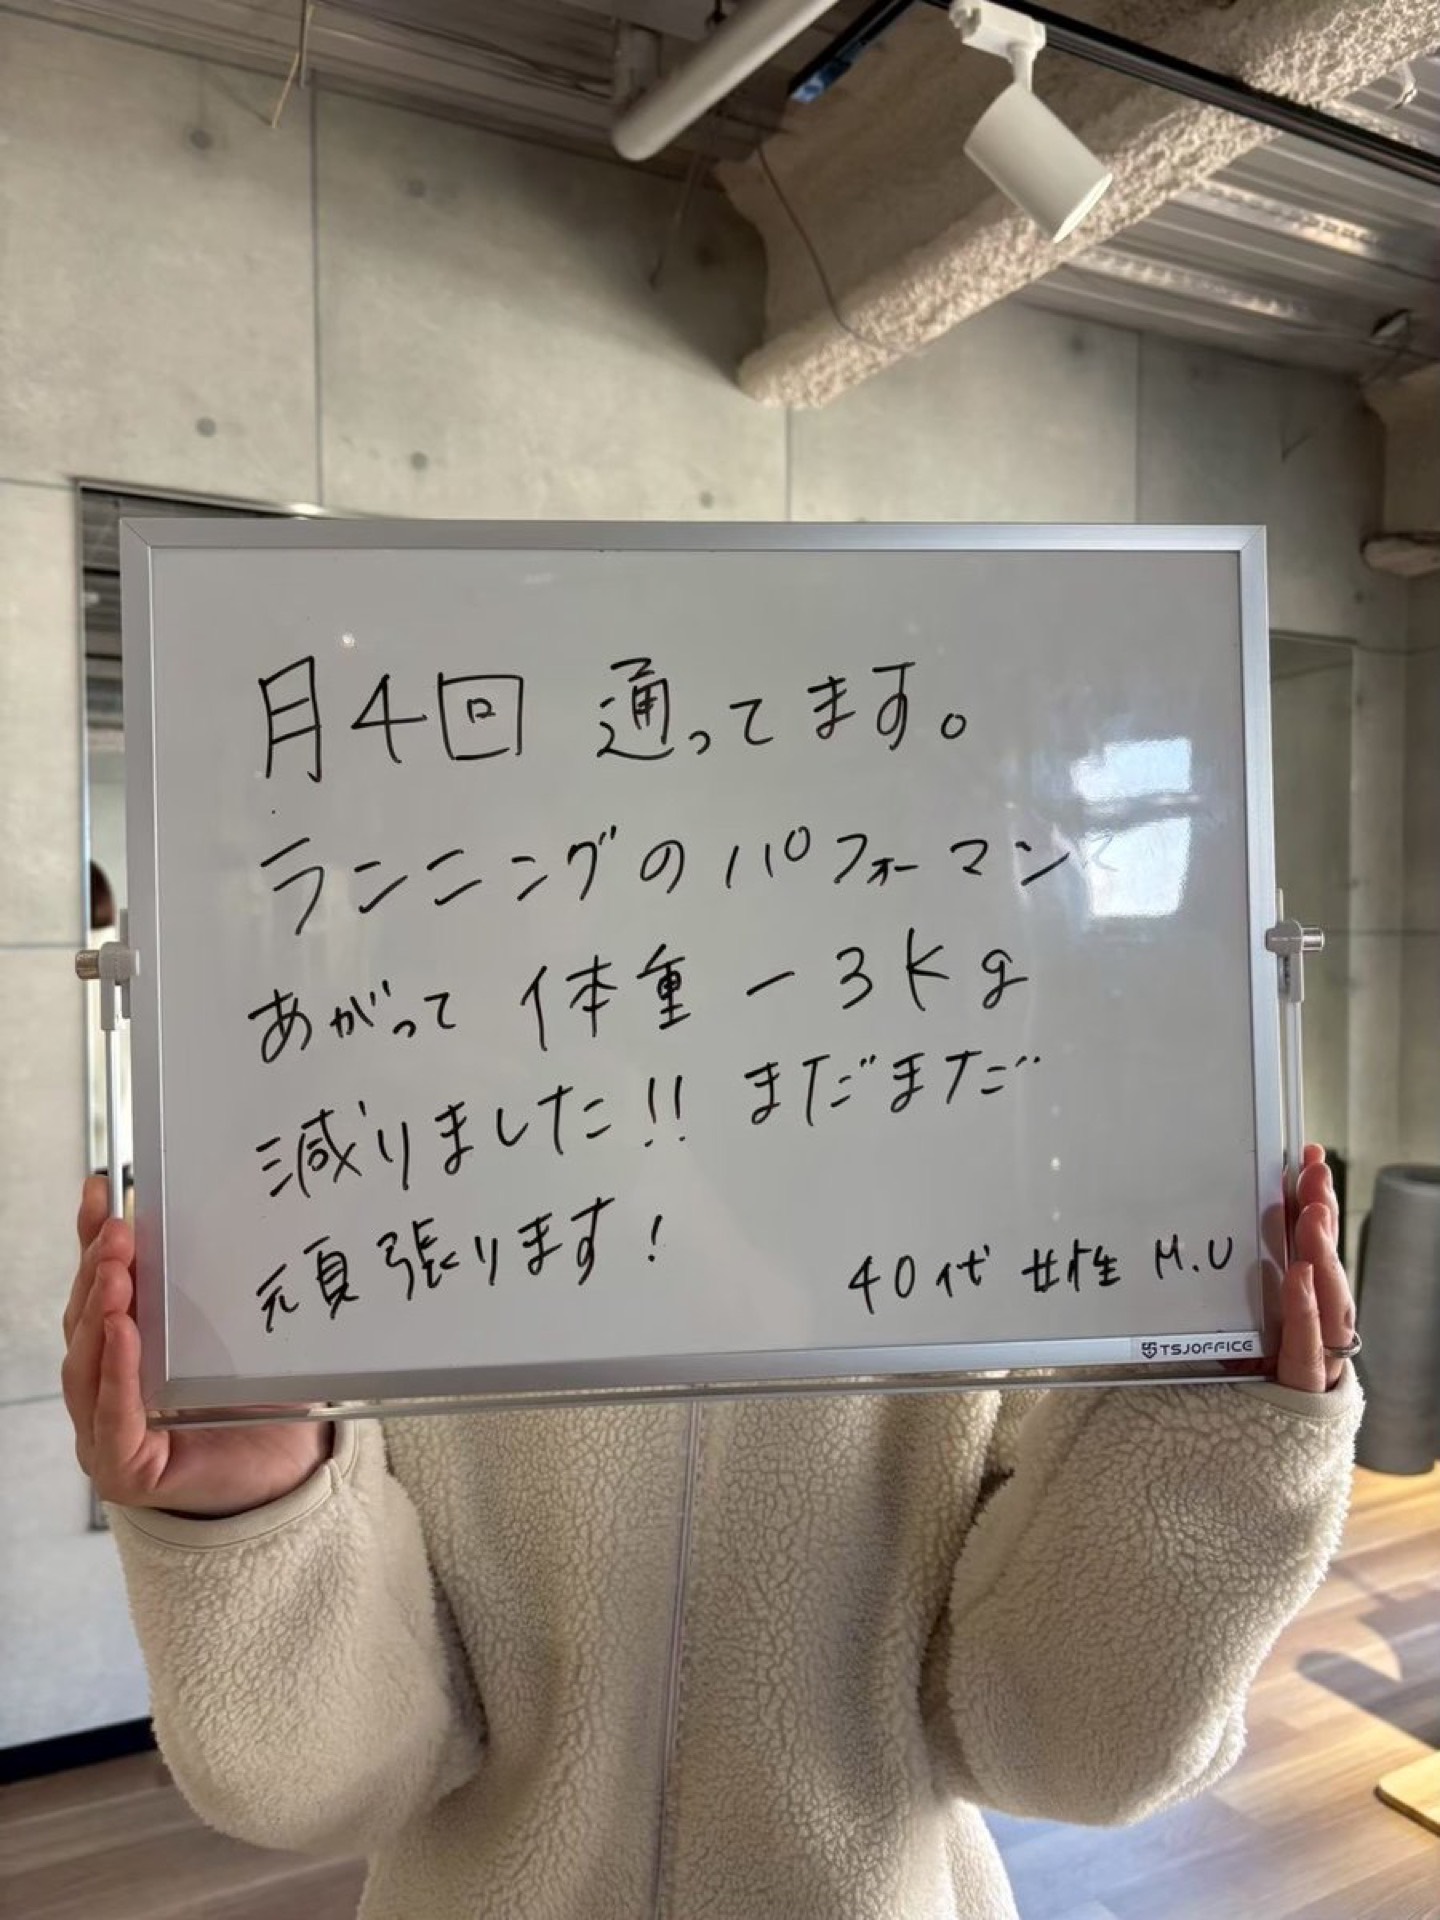 月4回 通ってます。
ランニングのパフォーマンス
あがって 体重 －3kg
減りました!! まだまだ
頑張ります!
40代 女性 M.U
TSJOFFICE